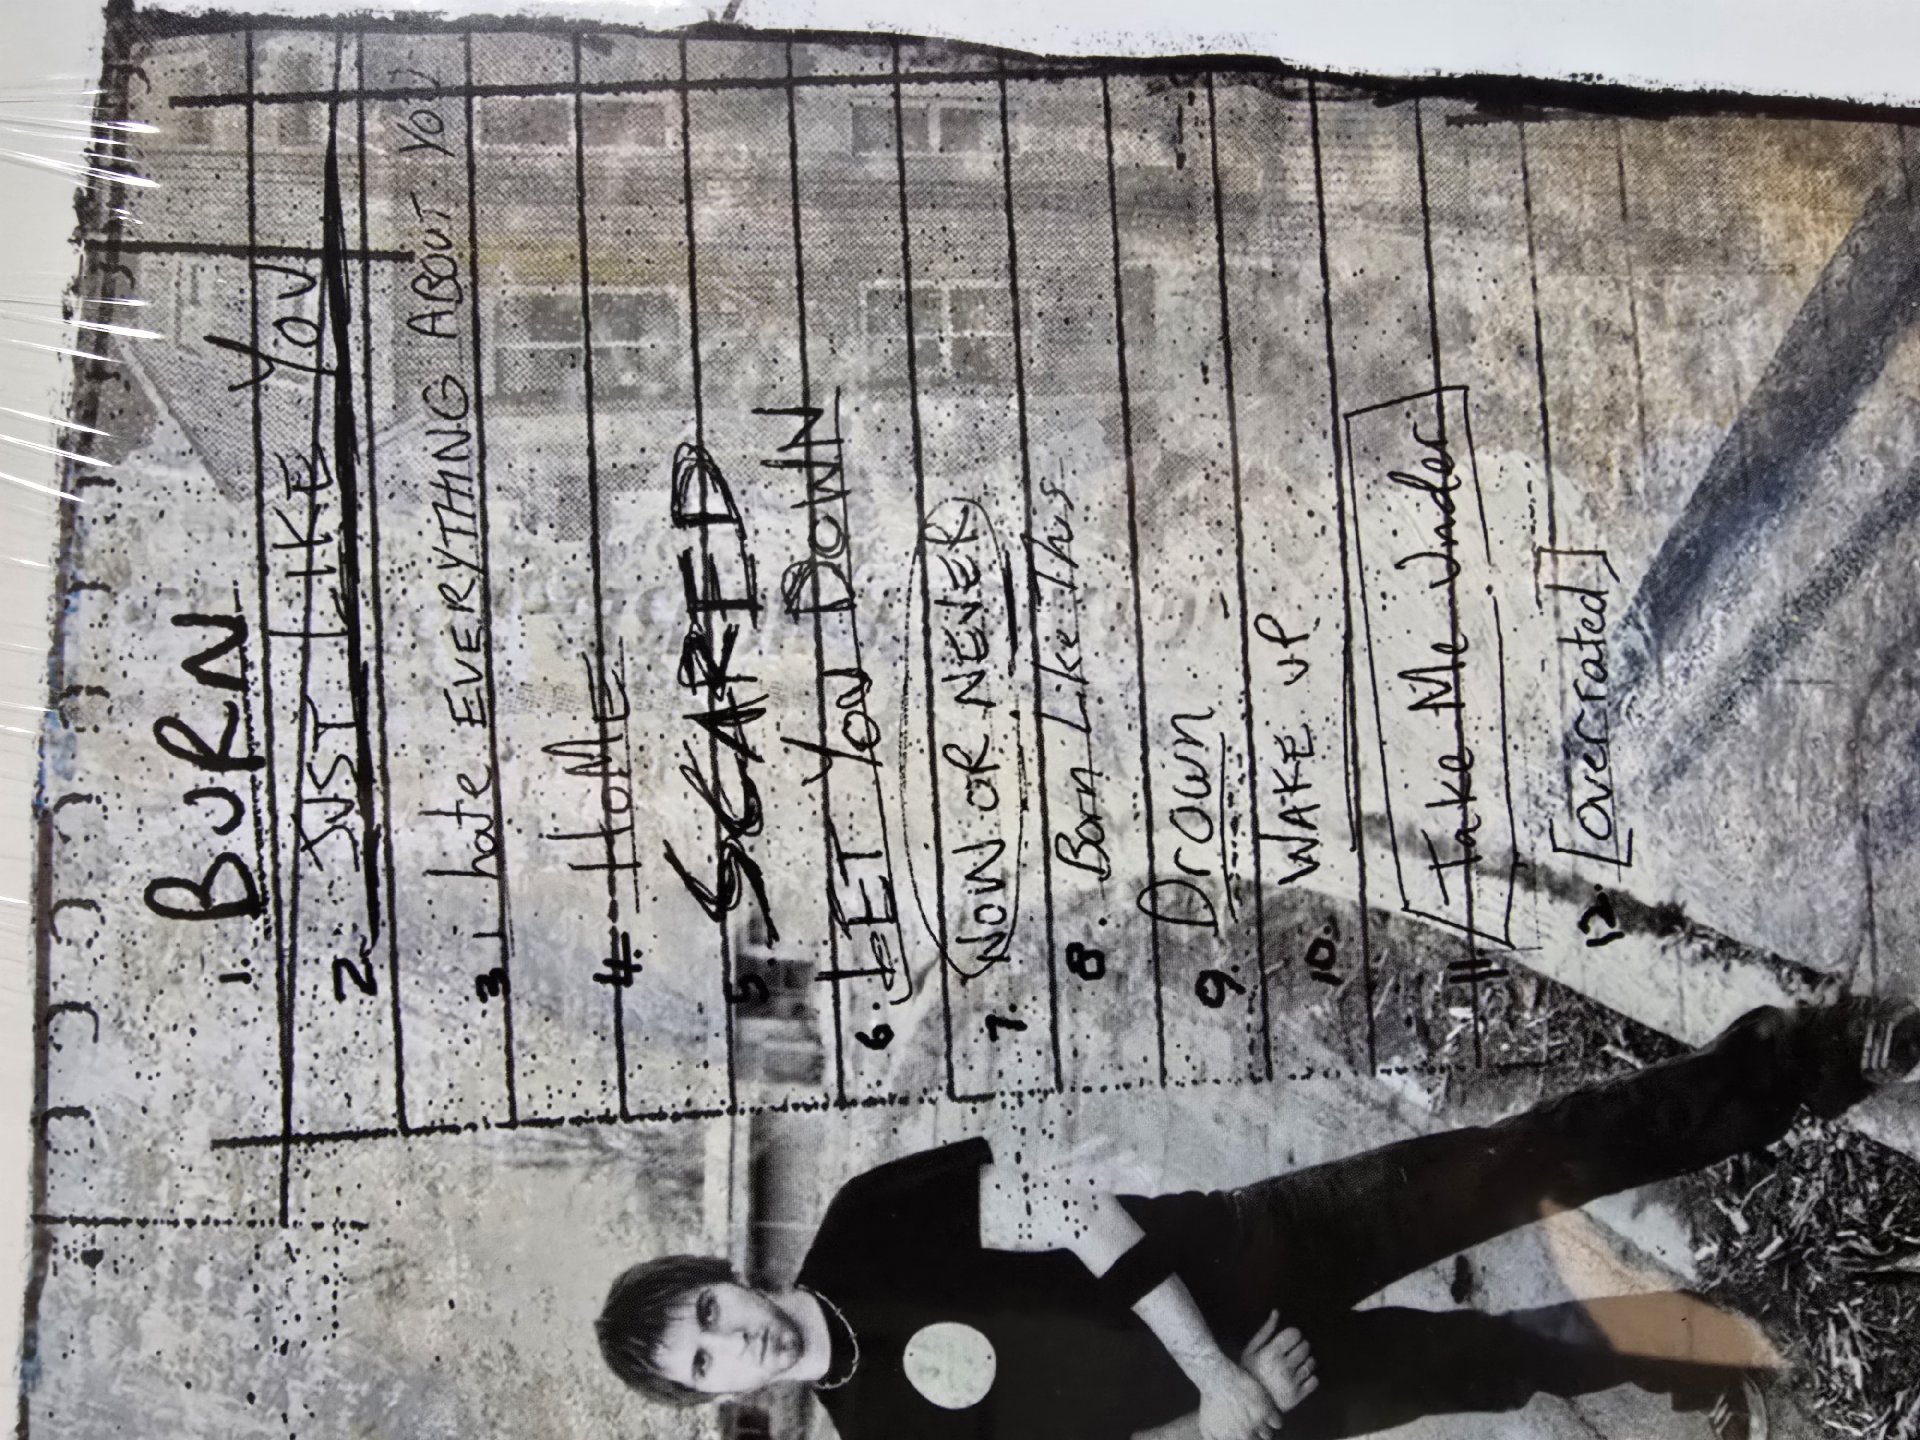 1. BURN
2. JUST LIKE YOU
3. I hate EVERYTHING ABOUT YOU
4. HOME
5. SCARED
6. LET YOU DOWN
7. NOW OR NEVER
8. Born Like This
9. Drown
10. WAKE UP
11. Take Me Under
12. [overrated]